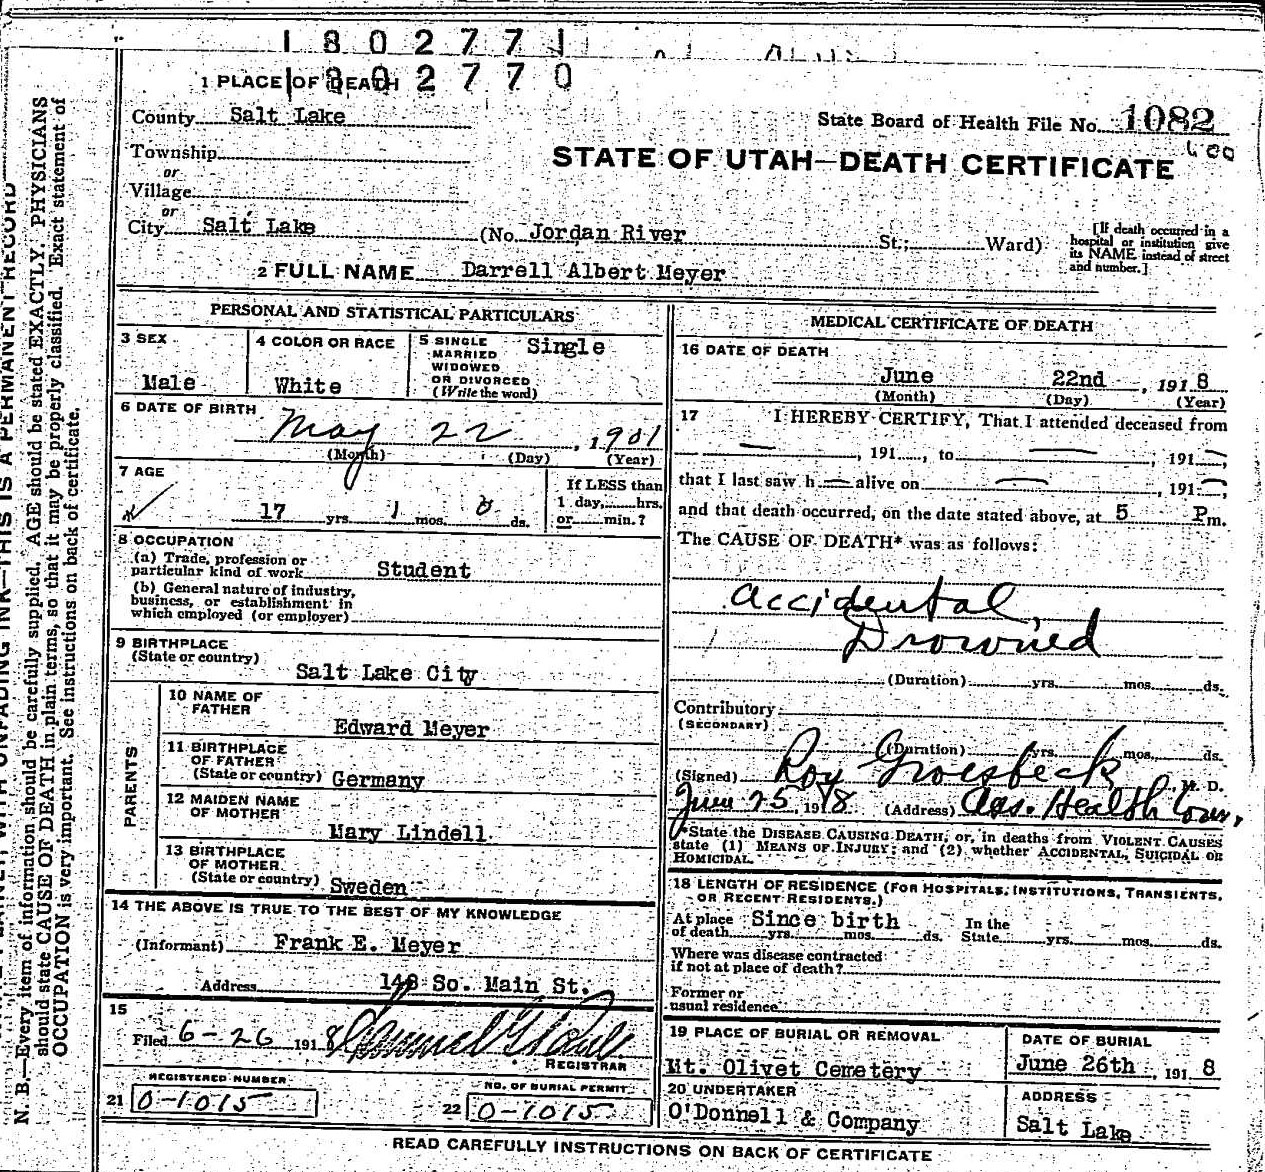 1 8 0 2 7 7 1
1 8 0 2 7 7 0
1 PLACE OF DEATH
County Salt Lake
State Board of Health File No. 1082
Township
or
Village
or
STATE OF UTAH—DEATH CERTIFICATE
City Salt Lake (No. Jordan River St.; Ward)
[If death occurred in a
hospital or institution give
its NAME instead of street
and number.]
2 FULL NAME Darrell Albert Meyer
PERSONAL AND STATISTICAL PARTICULARS
3 SEX
Male
4 COLOR OR RACE
White
5 SINGLE
MARRIED
WIDOWED
OR DIVORCED
(Write the word)
Single
6 DATE OF BIRTH
May 22, 1901
(Month) (Day) (Year)
7 AGE
17 yrs. 1 mos. 0 ds.
If LESS than
1 day, hrs.
or min.?
8 OCCUPATION
(a) Trade, profession or
particular kind of work Student
(b) General nature of industry,
business, or establishment in
which employed (or employer)
9 BIRTHPLACE
(State or country)
Salt Lake City
PARENTS
10 NAME OF
FATHER
Edward Meyer
11 BIRTHPLACE
OF FATHER
(State or country) Germany
12 MAIDEN NAME
OF MOTHER
Mary Lindell.
13 BIRTHPLACE
OF MOTHER
(State or country) Sweden
14 THE ABOVE IS TRUE TO THE BEST OF MY KNOWLEDGE
(Informant) Frank E. Meyer
Address 148 So. Main St.
15
Filed 6-26 191 8
REGISTRAR
REGISTERED NUMBER
21 0-1015
NO. OF BURIAL PERMIT
22 0-1015
MEDICAL CERTIFICATE OF DEATH
16 DATE OF DEATH
June 22nd, 191 8
(Month) (Day) (Year)
17 I HEREBY CERTIFY, That I attended deceased from
— , 191 , to — , 191 —,
that I last saw h — alive on — , 191 —,
and that death occurred, on the date stated above, at 5 P m.
The CAUSE OF DEATH* was as follows:
Accidental,
Drowned
(Duration) yrs. mos. ds.
Contributory
(SECONDARY)
(Duration) yrs. mos. ds.
(Signed) Roy Groesbeck, M. D.
June 25 1918 (Address) Ass. Health Com.
*State the DISEASE CAUSING DEATH, or, in deaths from VIOLENT CAUSES
state (1) MEANS OF INJURY; and (2) whether ACCIDENTAL, SUICIDAL OR
HOMICIDAL.
18 LENGTH OF RESIDENCE (FOR HOSPITALS, INSTITUTIONS, TRANSIENTS,
OR RECENT RESIDENTS.)
At place Since birth In the
of death yrs. mos. ds. State yrs. mos. ds.
Where was disease contracted
if not at place of death?
Former or
usual residence
19 PLACE OF BURIAL OR REMOVAL
Mt. Olivet Cemetery
DATE OF BURIAL
June 26th, 191 8
20 UNDERTAKER
O'Donnell & Company
ADDRESS
Salt Lake
READ CAREFULLY INSTRUCTIONS ON BACK OF CERTIFICATE
WITH UNFADING INK—THIS IS A PERMANENT RECORD
N. B.—Every item of information should be carefully supplied. AGE should be stated EXACTLY. PHYSICIANS
should state CAUSE OF DEATH in plain terms, so that it may be properly classified. Exact statement of
OCCUPATION is very important. See instructions on back of certificate.